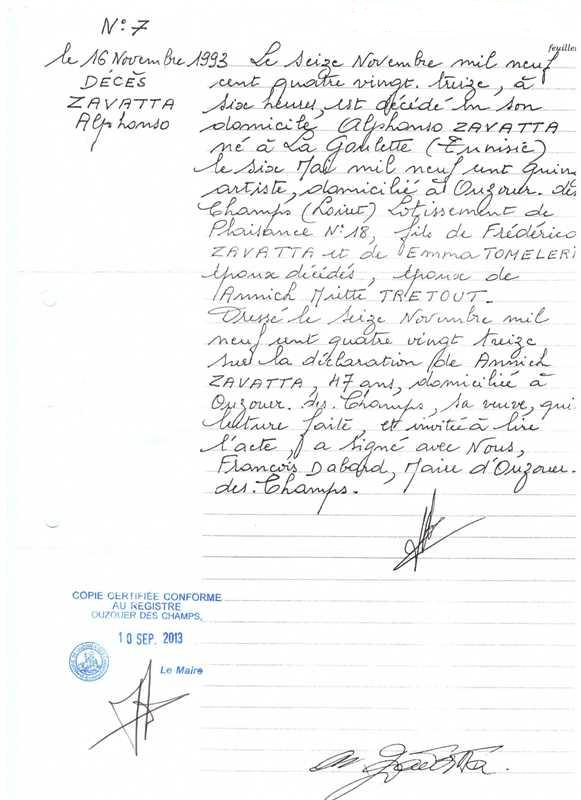 N°7
feuille
le 16 Novembre 1993
DÉCÈS
ZAVATTA
Alphonso
Le seize Novembre mil neuf
cent quatre vingt. treize, à
six heures, est décédé en son
domicile, Alphonso ZAVATTA
né à La Goulette (Tunisie)
le six Mai mil neuf cent quin
artiste, domicilié à Ouzouer. des
Champs (Loiret) Lotissement de
Plaisance N°18, fils de Frédérico
ZAVATTA et de Emma TOMELERI
époux décédés, époux de
Annich Miette TRETOUT_
Dressé le seize Novembre mil
neuf cent quatre vingt treize
sur la déclaration de Annich
ZAVATTA, 47 ans, domiciliée à
Ouzouer. des. Champs, sa veuve, qui
lecture faite, et invitée à lire
l'acte, a signé avec Nous,
François Dabard, Maire d'Ouzouer.
des. Champs.
COPIE CERTIFIÉE CONFORME
AU REGISTRE
OUZOUER DES CHAMPS,
10 SEP. 2013
Le Maire
Zavatta